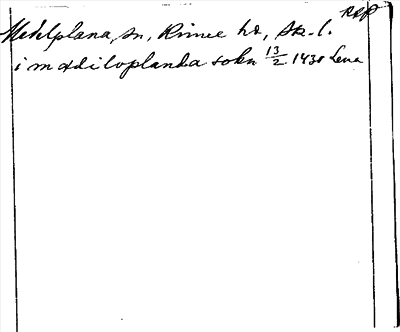 Rep
Medelplana, sn, Kinne hd, Sk. l.
i mædiloplanda sokn 13/2 1430 Lena